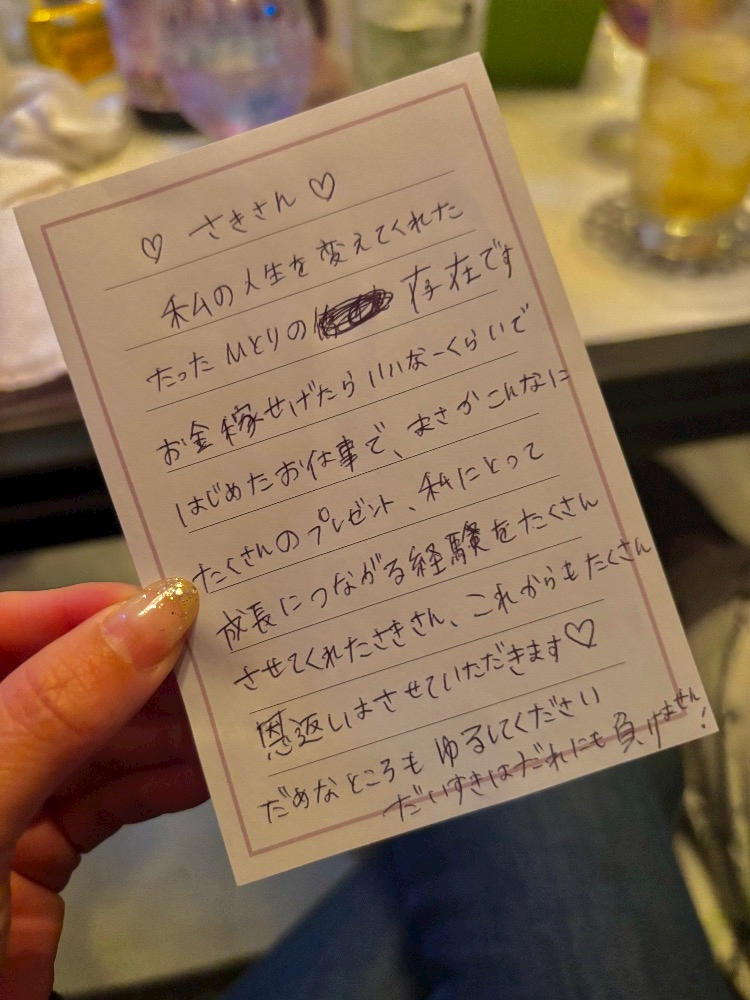 ♡ さきさん ♡
私の人生を変えてくれた
たったひとりの 存在です
お金稼せげたらいいなーくらいで
はじめたお仕事で、まさかこんなに
たくさんのプレゼント、私にとって
成長につながる経験をたくさん
させてくれたさきさん、これからもたくさん
恩返しはさせていただきます♡
だめなところもゆるしてください
だいすきはだれにも負けません!